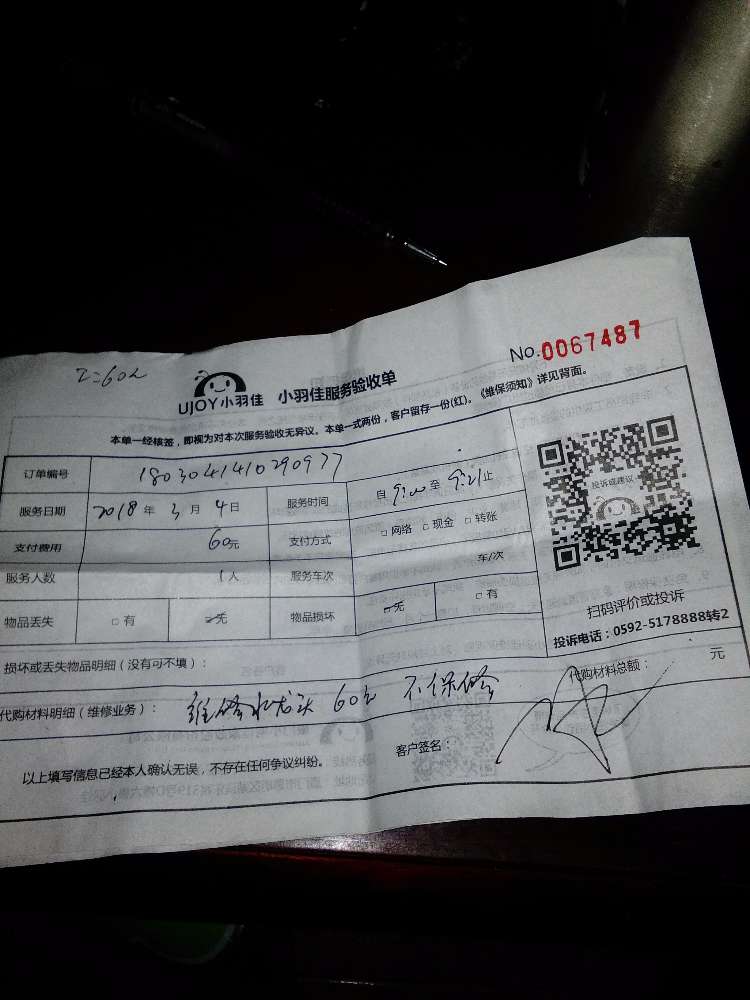 No.0067487
工=60元
UJOY小羽佳 小羽佳服务验收单
本单一经核签，即视为对本次服务验收无异议。本单一式两份，客户留存一份(红)。《维保须知》详见背面。
订单编号 1803041410290977
服务日期 2018年3月4日 服务时间 自9:00至9:21止
支付费用 60元 支付方式 □网络 □现金 □转账
服务人数 1人 服务车次 车/次
物品丢失 □有 □无 物品损坏 □无 □有
损坏或丢失物品明细（没有可不填）：
代购材料明细（维修业务）： 维修水龙头 60元 不保修 代购材料总额： 元
以上填写信息已经本人确认无误，不存在任何争议纠纷。 客户签名：
投诉或建议
扫码评价或投诉
投诉电话：0592-5178888转2